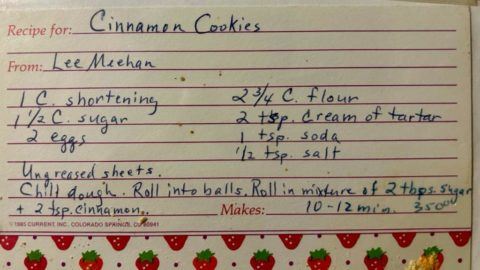 Recipe for: Cinnamon Cookies
From: Lee Meehan
1 C. shortening 2 3/4 C. flour
1 1/2 C. sugar 2 tsp. Cream of tartar
2 eggs 1 tsp. soda
1/2 tsp. salt
Ungreased sheets.
Chill dough. Roll into balls. Roll in mixture of 2 tbps. sugar
+ 2 tsp. cinnamon. Makes: 10-12 min. 350°
©1985 CURRENT, INC. COLORADO SPRINGS, CO 80941